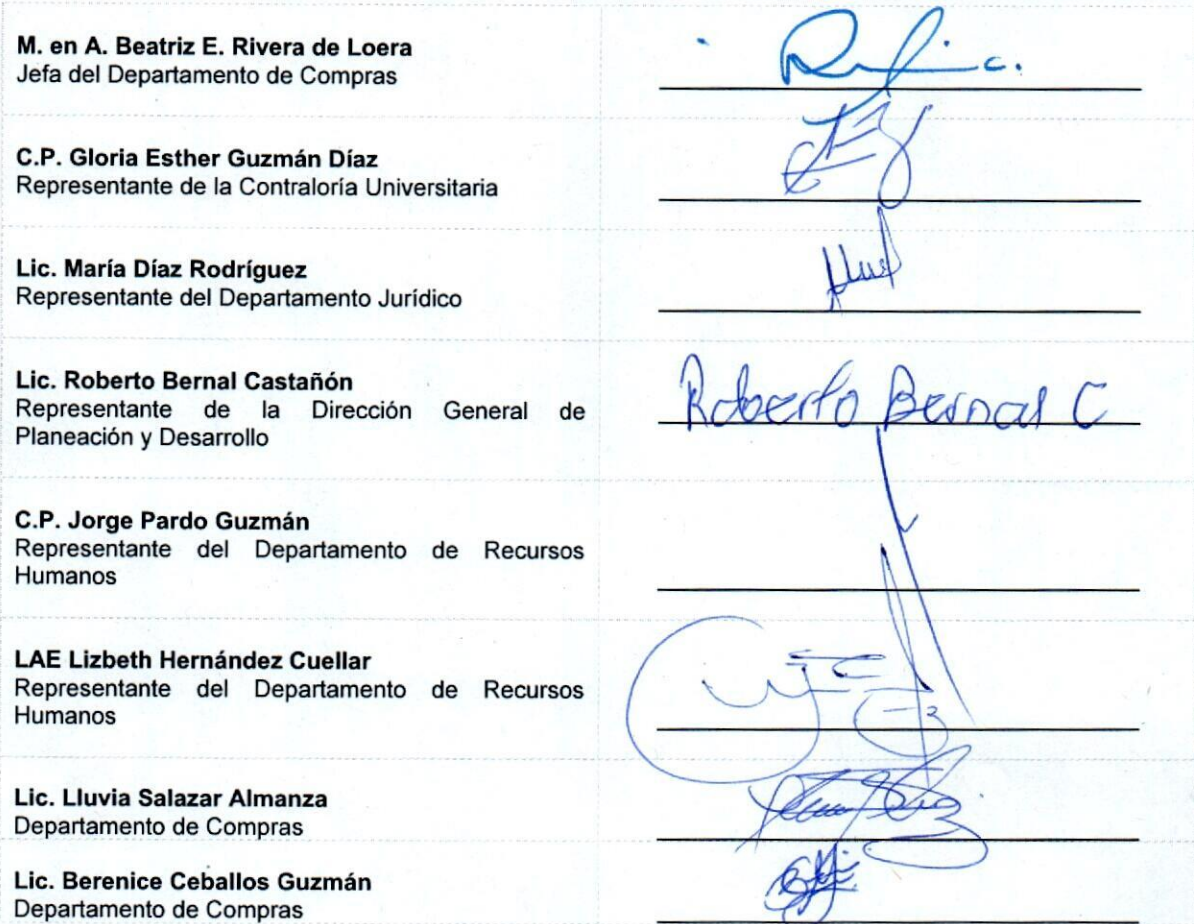 M. en A. Beatriz E. Rivera de Loera
Jefa del Departamento de Compras
C.P. Gloria Esther Guzmán Díaz
Representante de la Contraloría Universitaria
Lic. María Díaz Rodríguez
Representante del Departamento Jurídico
Lic. Roberto Bernal Castañón
Representante de la Dirección General de
Planeación y Desarrollo
Roberto Bernal C
C.P. Jorge Pardo Guzmán
Representante del Departamento de Recursos
Humanos
LAE Lizbeth Hernández Cuellar
Representante del Departamento de Recursos
Humanos
Lic. Lluvia Salazar Almanza
Departamento de Compras
Lic. Berenice Ceballos Guzmán
Departamento de Compras